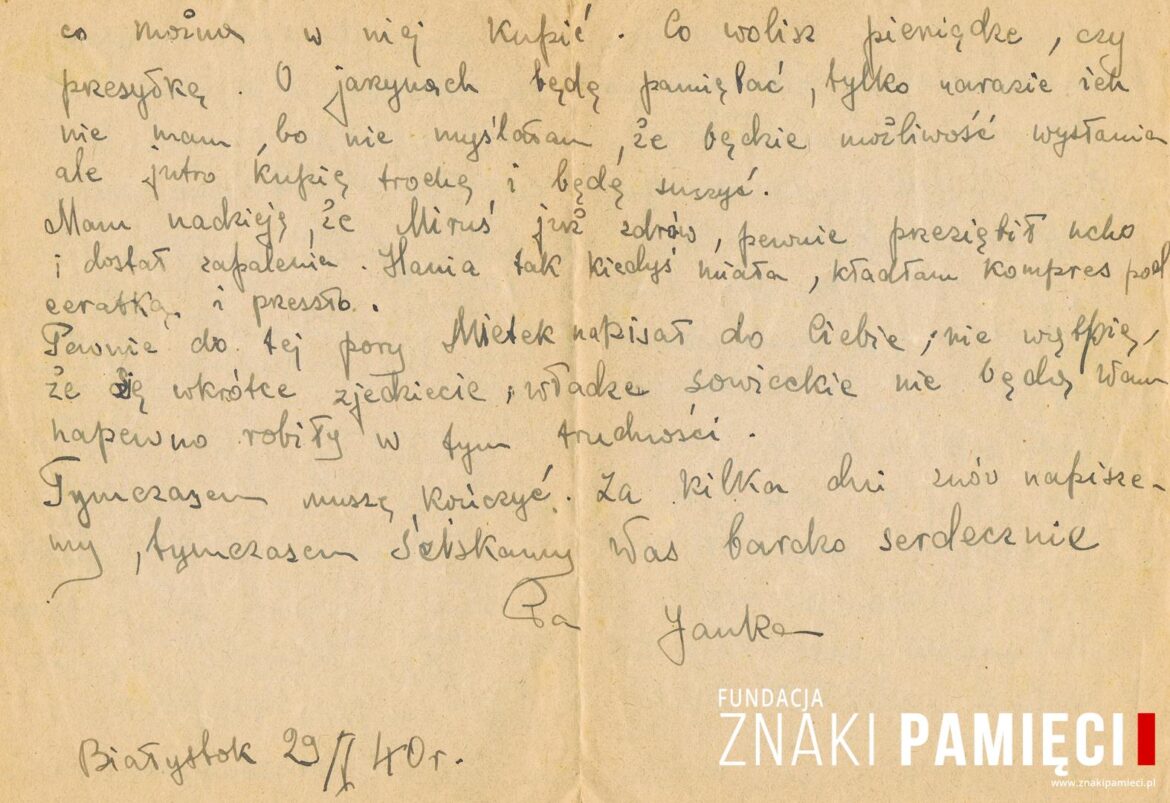 co można w niej kupić. Co wolisz pieniądze, czy
przesyłkę. O jarzynach będę pamiętać, tylko narazie ich
nie mam, bo nie myślałam, że będzie możliwość wysłania
ale jutro kupię trochę i będę suszyć.
Mam nadzieję, że Miruś już zdrów, pewnie przeziębił ucho
i dostał zapalenia. Hania tak kiedyś miała, kładłam kompres pod
ceratką, i przeszło.
Pewnie do tej pory Mietek napisał do Ciebie, nie wątpię,
że się wkrótce zjedziecie, władze sowieckie nie będą Wam
napewno robiły w tym trudności.
Tymczasem muszę kończyć. Za kilka dni znów napisze-
my, tymczasem ściskamy Was bardzo serdecznie
Janka
Białystok 29/X 40 r.
FUNDACJA
ZNAKI PAMIĘCI
www.znakipamieci.pl